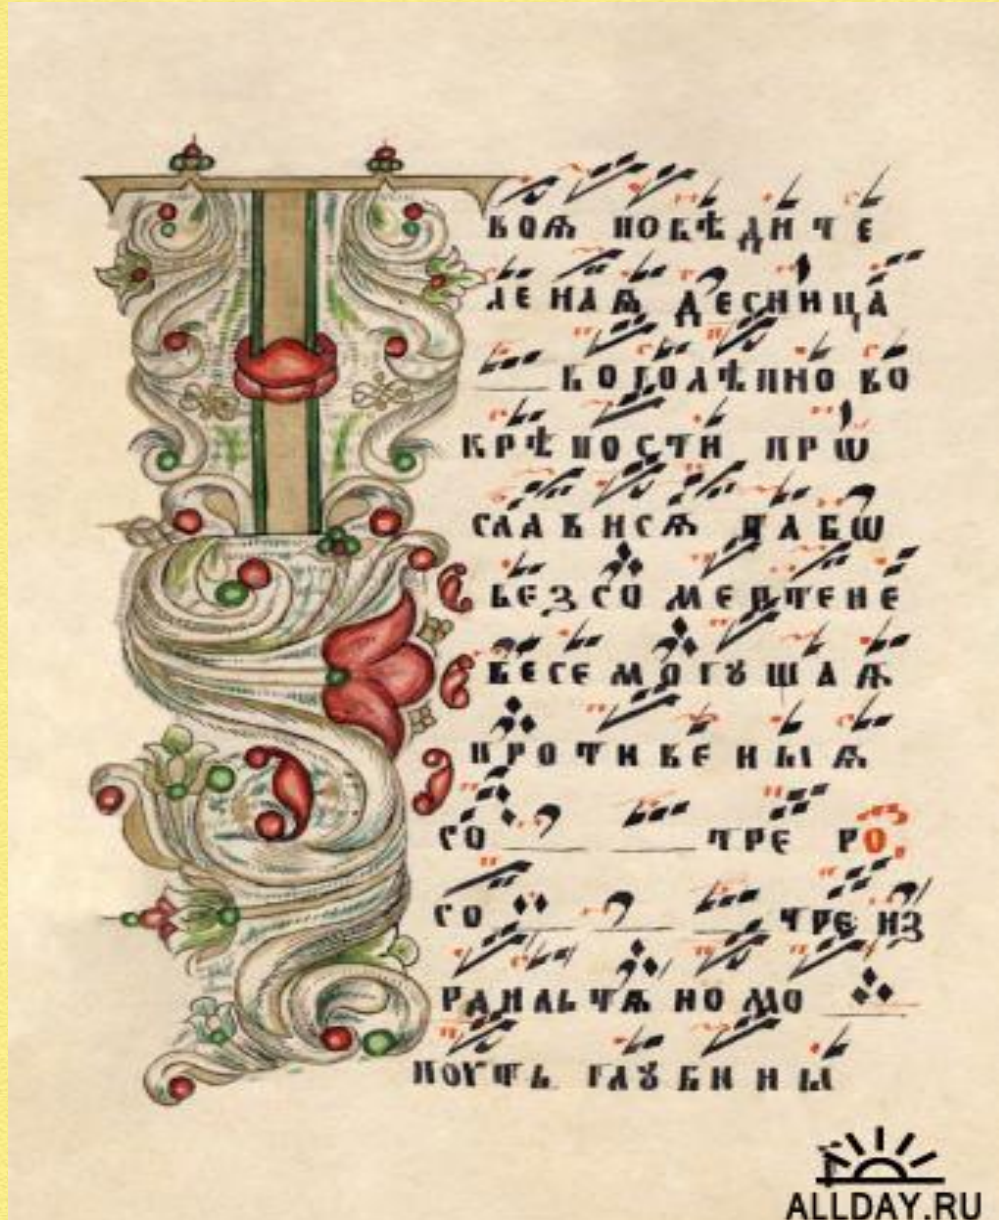 Т
ВОѦ ПОБѢДИТЕ
ЛЕНАѦ ДЕСНИЦА
БОГОЛѢПНО ВО
КРѢПОСТИ ПРѠ
СЛАВИСѦ ТАБѠ
БЕЗСО МЕРТЕНЕ
ВЕСЕМОГꙊЩАѦ
ПРОТИВЕНЫѦ
СО ТРЕ РО.
СО ТРЕ ИЗ
РАИЛЬТѦНОМО
ПОУТЬ ГЛꙊБИНЫ
ALLDAY.RU